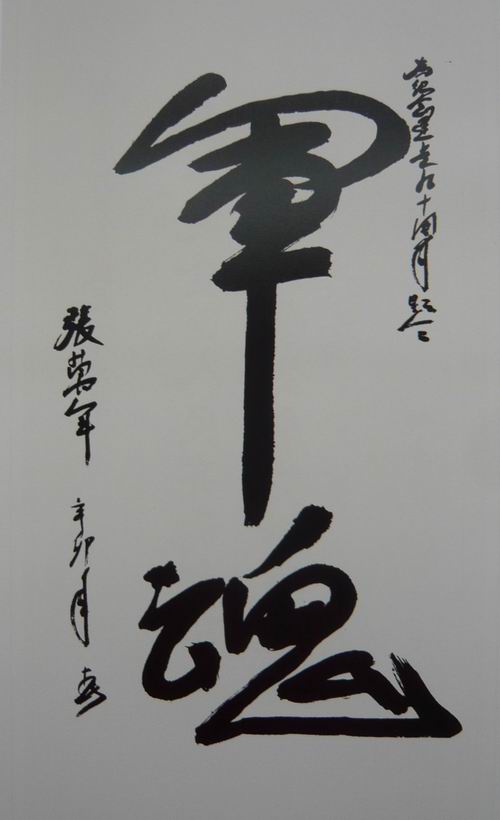 為纪念建党九十周年题
軍魂
張萬年 辛卯年春